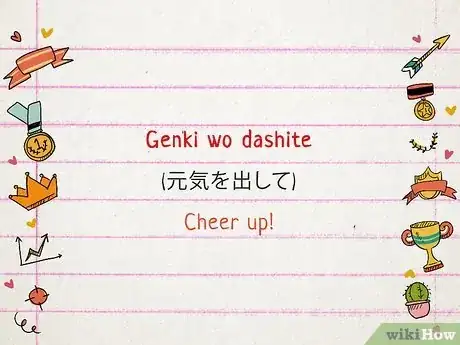 Genki wo dashite
(元気を出して)
Cheer up!
wikiHow